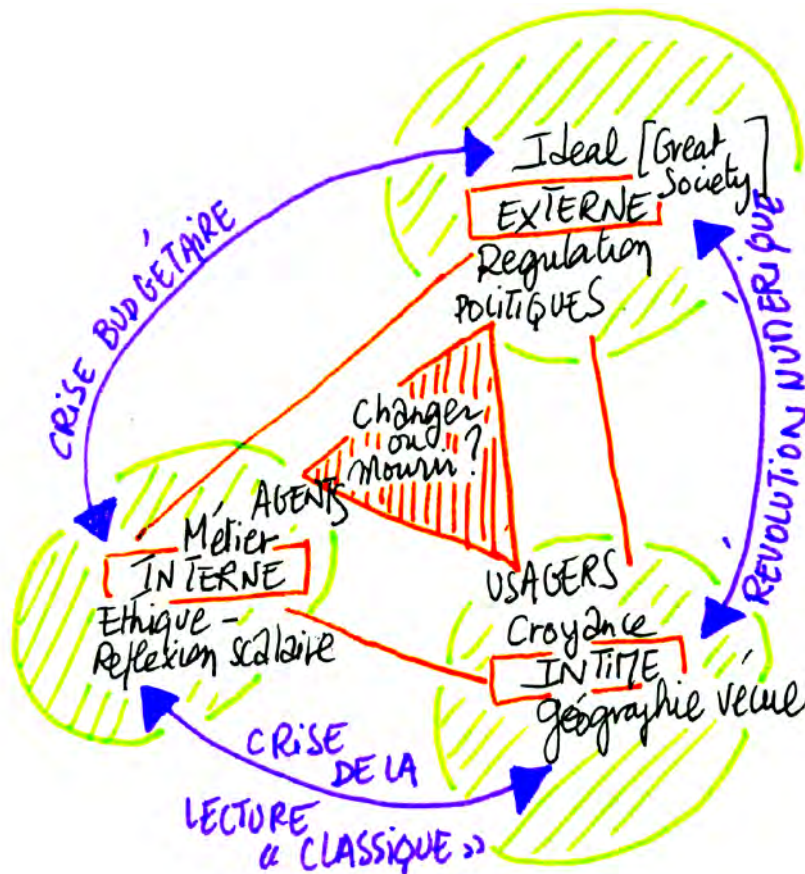 Ideal [Great
Society]
EXTERNE
Regulation
POLITIQUES
CRISE BUDGÉTAIRE
RÉVOLUTION NUMÉRIQUE
Changer
ou
mourir ?
AGENTS
Métier
INTERNE
Ethique -
Réflexion scalaire
USAGERS
Croyance
INTIME
géographie vécue
CRISE
DE LA
LECTURE
« CLASSIQUE »